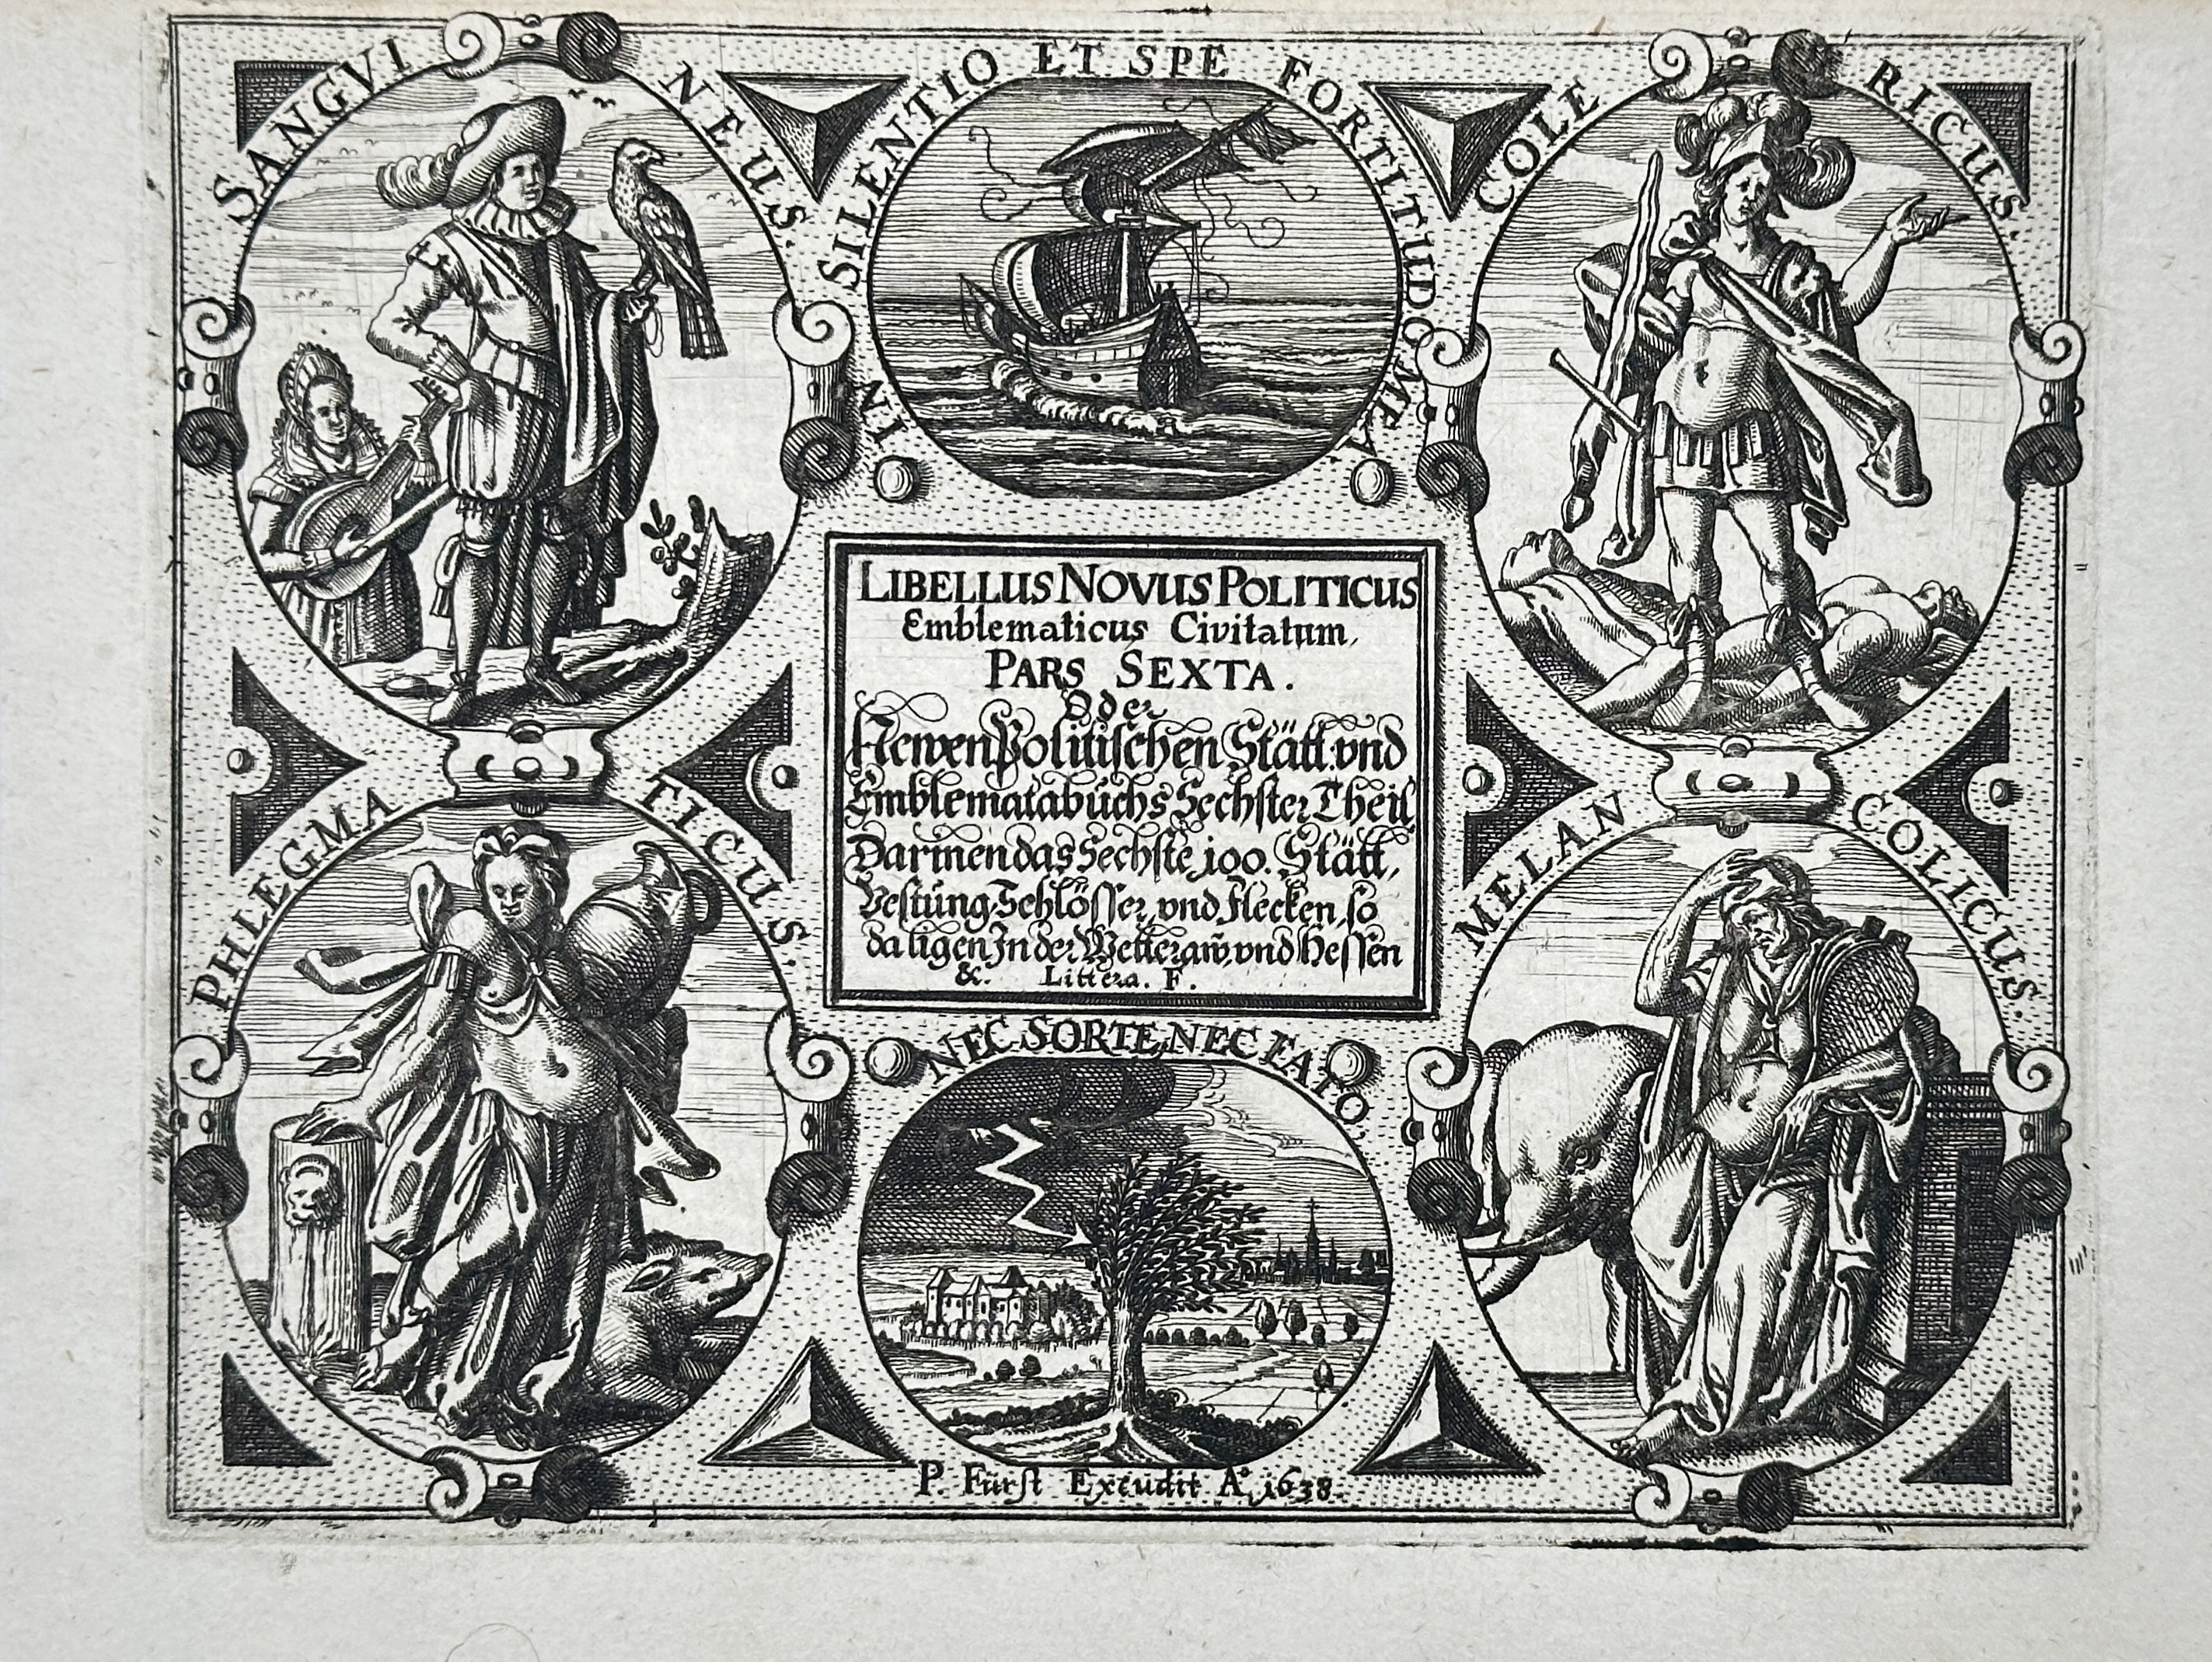 SANGVI NEUS.
IN SILENTIO ET SPE FORTITUDO MEA
COLE RICUS.
LIBELLUS NOVUS POLITICUS
Emblematicus Civitatum,
PARS SEXTA.
Oder
Newen Politischen Stätt: vnd
Emblematabuchs Sechster Theil,
Darinen das Sechste 100. Stätt,
Vestung, Schlösser, vnd Flecken, so
da ligen In der Wetteraw, vnd Hessen
&. Littera. F.
PHLEGMA TICUS.
MELAN COLICUS.
NEC SORTE, NEC FATO,
P. Fürst Excudit Aº 1638.